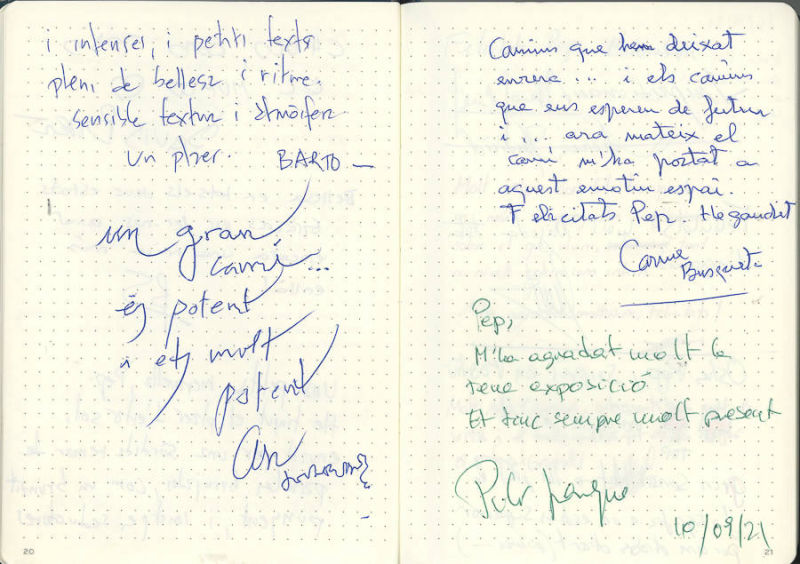 i intenses, i petits texts
plens de bellesa i ritme.
sensible textura i atmòsfera
Un plaer. BARTO —
un gran
camí...
és potent
i ets molt
potent
Camins que hem deixat
enrere... i els camins
que ens esperen de futur
i... ara mateix el
camí m'ha portat a
aquest emotiu espai.
Felicitats Pep. He gaudit
Carme
Busquets
Pep,
M'ha agradat molt la
teva exposició
Et tinc sempre molt present
10/09/21
20
21